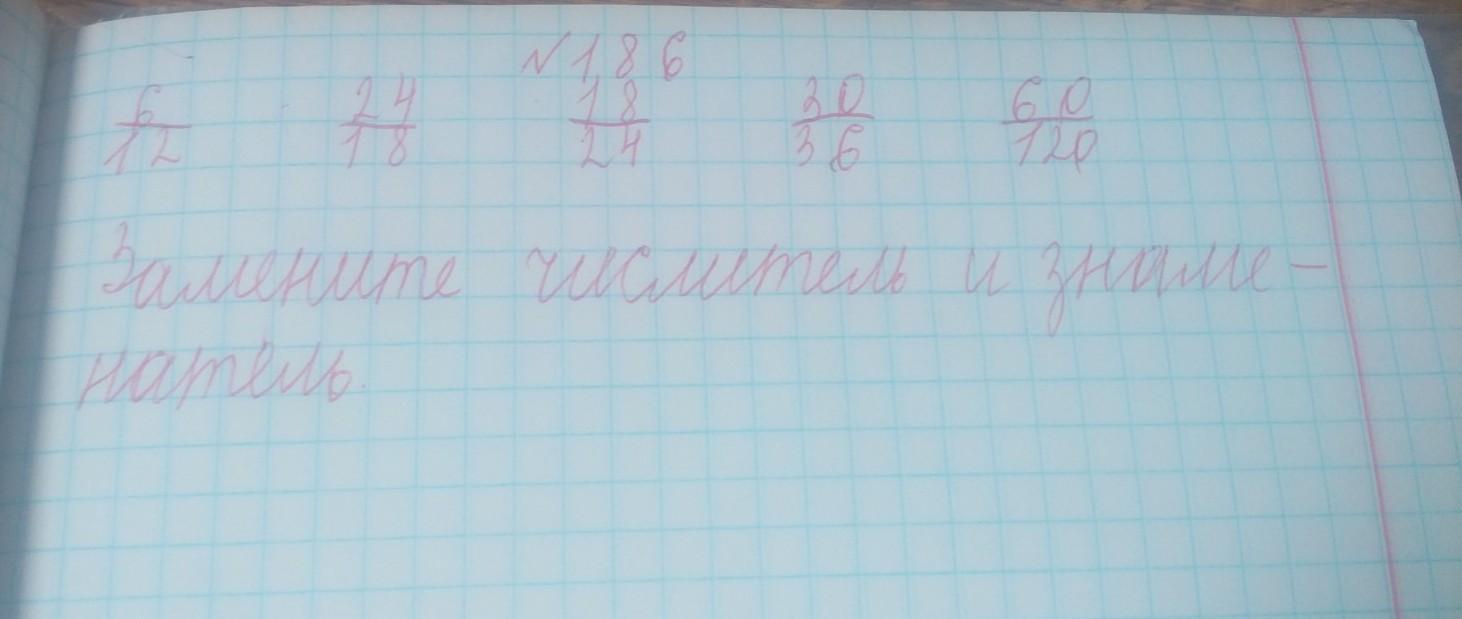 №186
6/12 24/18 18/24 30/36 60/120
Замените числитель и знаме-
натель.